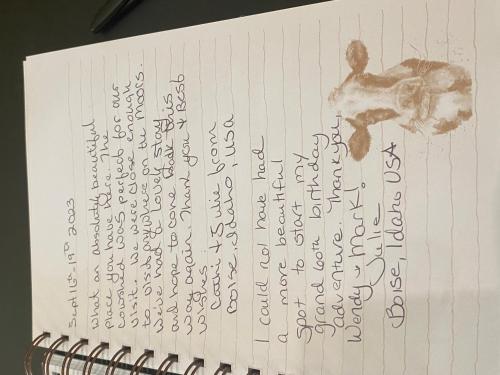 Sept 16th - 19th 2023
What an absolutely beautiful
place you have here. The
cowshed was perfect for our
visit. We were close enough
to visit anywhere on the moors.
We've had a lovely stay
and hope to come back this
way again. Thank you & Best
wishes.
& Julie from
Boise, Idaho, USA
I could not have had
a more beautiful
spot to start my
grand 60th birthday
adventure. Thank you,
Wendy & Mark.
Julie
Boise, Idaho USA